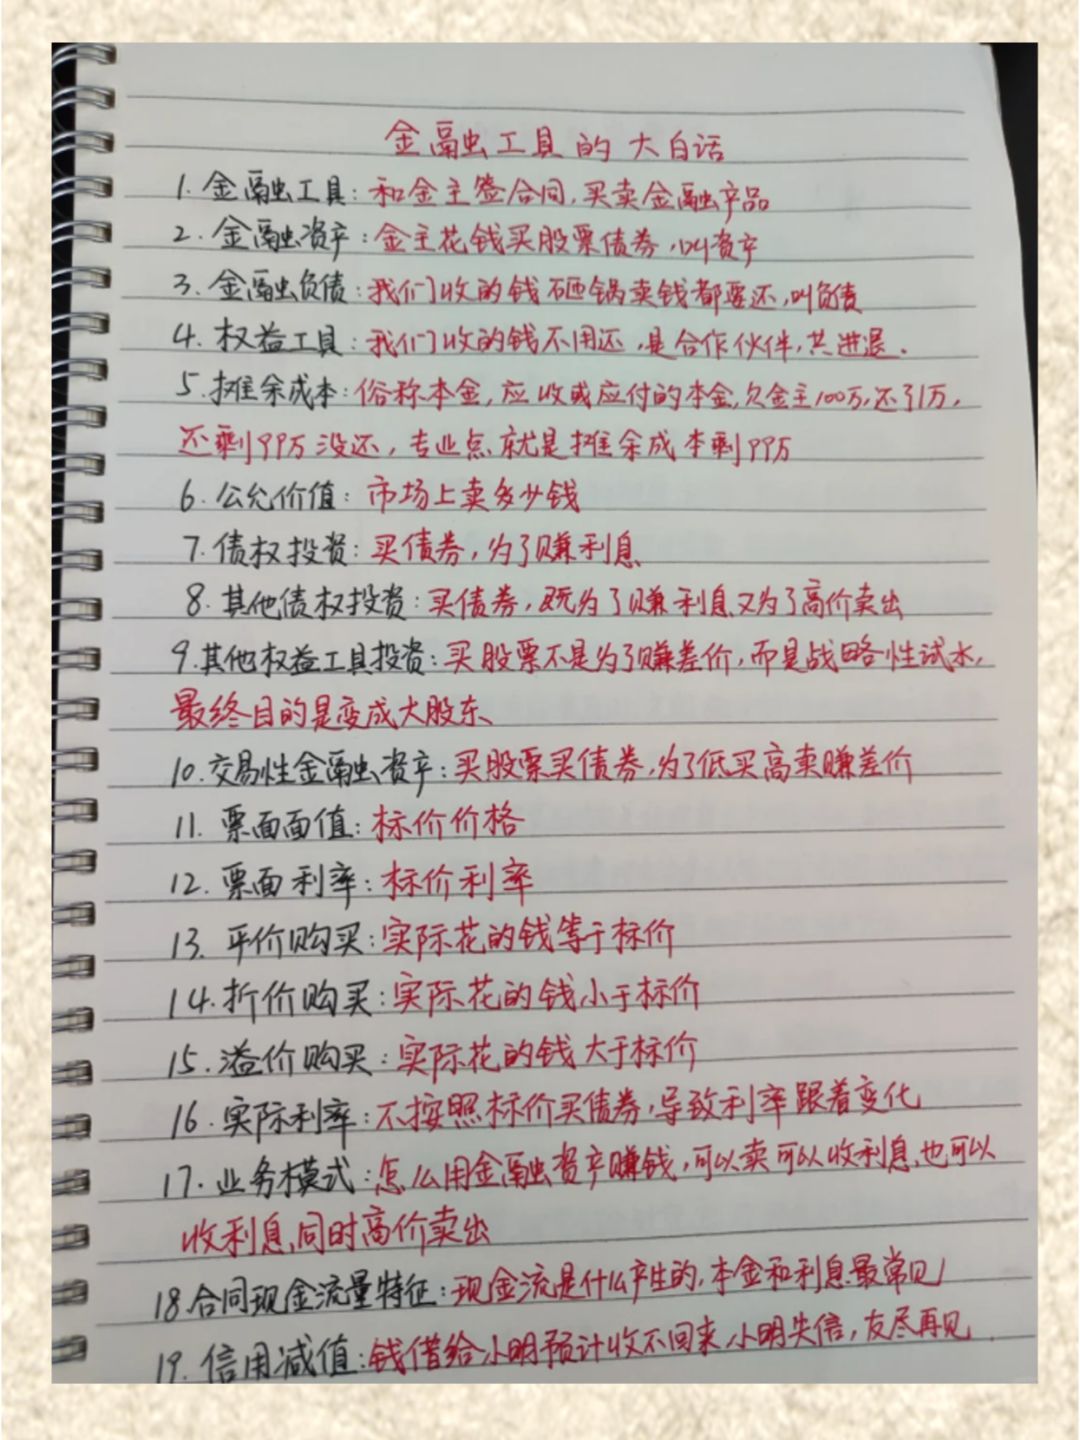 金融工具的大白话
1. 金融工具：和金主签合同，买卖金融产品
2. 金融资产：金主花钱买股票债券，叫资产
3. 金融负债：我们收的钱砸锅卖钱都要还，叫负债
4. 权益工具：我们收的钱不用还，是合作伙伴，共进退.
5. 摊余成本：俗称本金，应收或应付的本金，欠金主100万，还了1万，
还剩99万没还，专业点就是摊余成本剩99万
6. 公允价值：市场上卖多少钱
7. 债权投资：买债券，为了赚利息
8. 其他债权投资：买债券，既为了赚利息又为了高价卖出
9. 其他权益工具投资：买股票不是为了赚差价，而是战略性试水，
最终目的是变成大股东
10. 交易性金融资产：买股票买债券，为了低买高卖赚差价
11. 票面面值：标价价格
12. 票面利率：标价利率
13. 平价购买：实际花的钱等于标价
14. 折价购买：实际花的钱小于标价
15. 溢价购买：实际花的钱大于标价
16. 实际利率：不按照标价买债券，导致利率跟着变化
17. 业务模式：怎么用金融资产赚钱，可以卖可以收利息，也可以
收利息，同时高价卖出
18. 合同现金流量特征：现金流是什么产生的，本金和利息最常见
19. 信用减值：钱借给小明预计收不回来，小明失信，友尽再见.